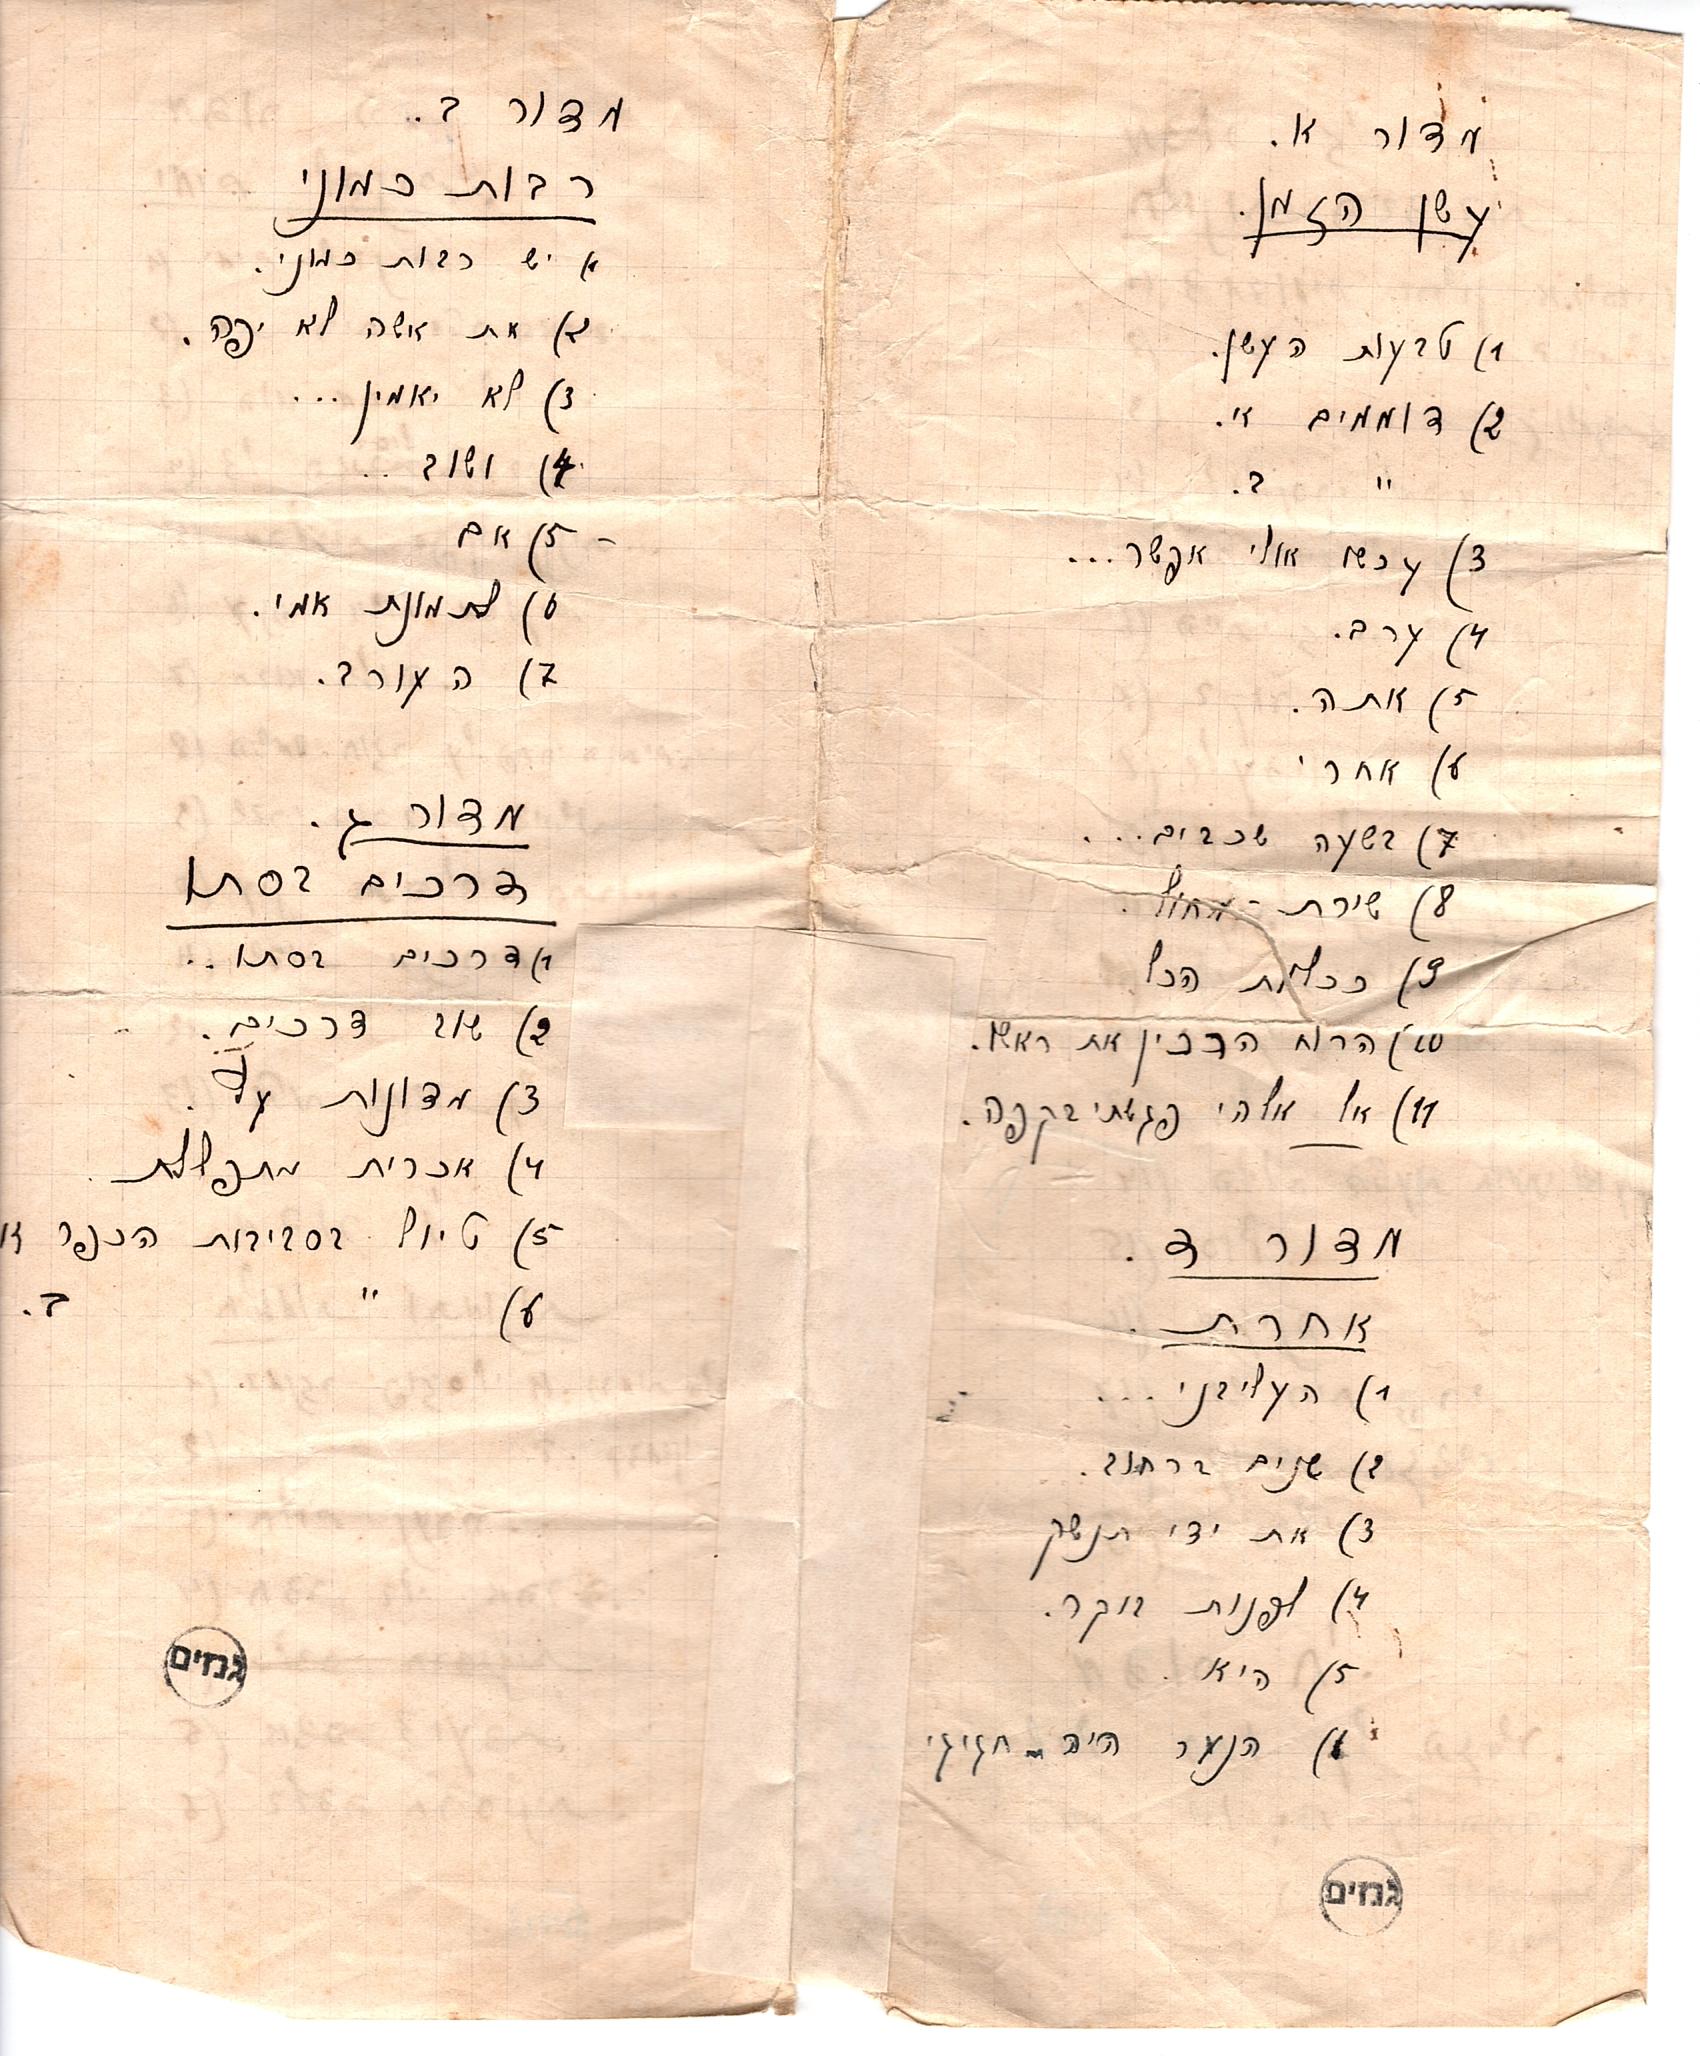 מדור א.
עשן הזמן.
1) טבעות העשן.
2) דוממים א.
" ב.
3) עכשו אולי אפשר...
4) ערב.
5) אתה.
6) אחרי
7) בשעה שכבים...
8) שירת - מחול.
9) ככלות הכל
10) הרוח הרכין את ראשו.
11) אל אלהי פגשתי בקפה.
מדור ד.
אחרת.
1) העליבני...
2) שנים ברחוב.
3) את ידי תנשק
4) לפנות בוקר.
5) היא.
6) הנער היה חגיגי
גנזים
מדור ב.
רבות כמוני
א יש רבות כמוני.
2) את אשה לא יפה.
3) לא יאמין...
4) ושוב..
5) אם
6) לתמונת אמי.
7) העורב.
מדור ג.
דרכים בסתו
1) דרכים בסתו..
2) שוב דרכים.
3) מדונות על.
4) אכרית מתפללת.
5) טיול בסביבות הכפר א
6) " ב.
גנזים